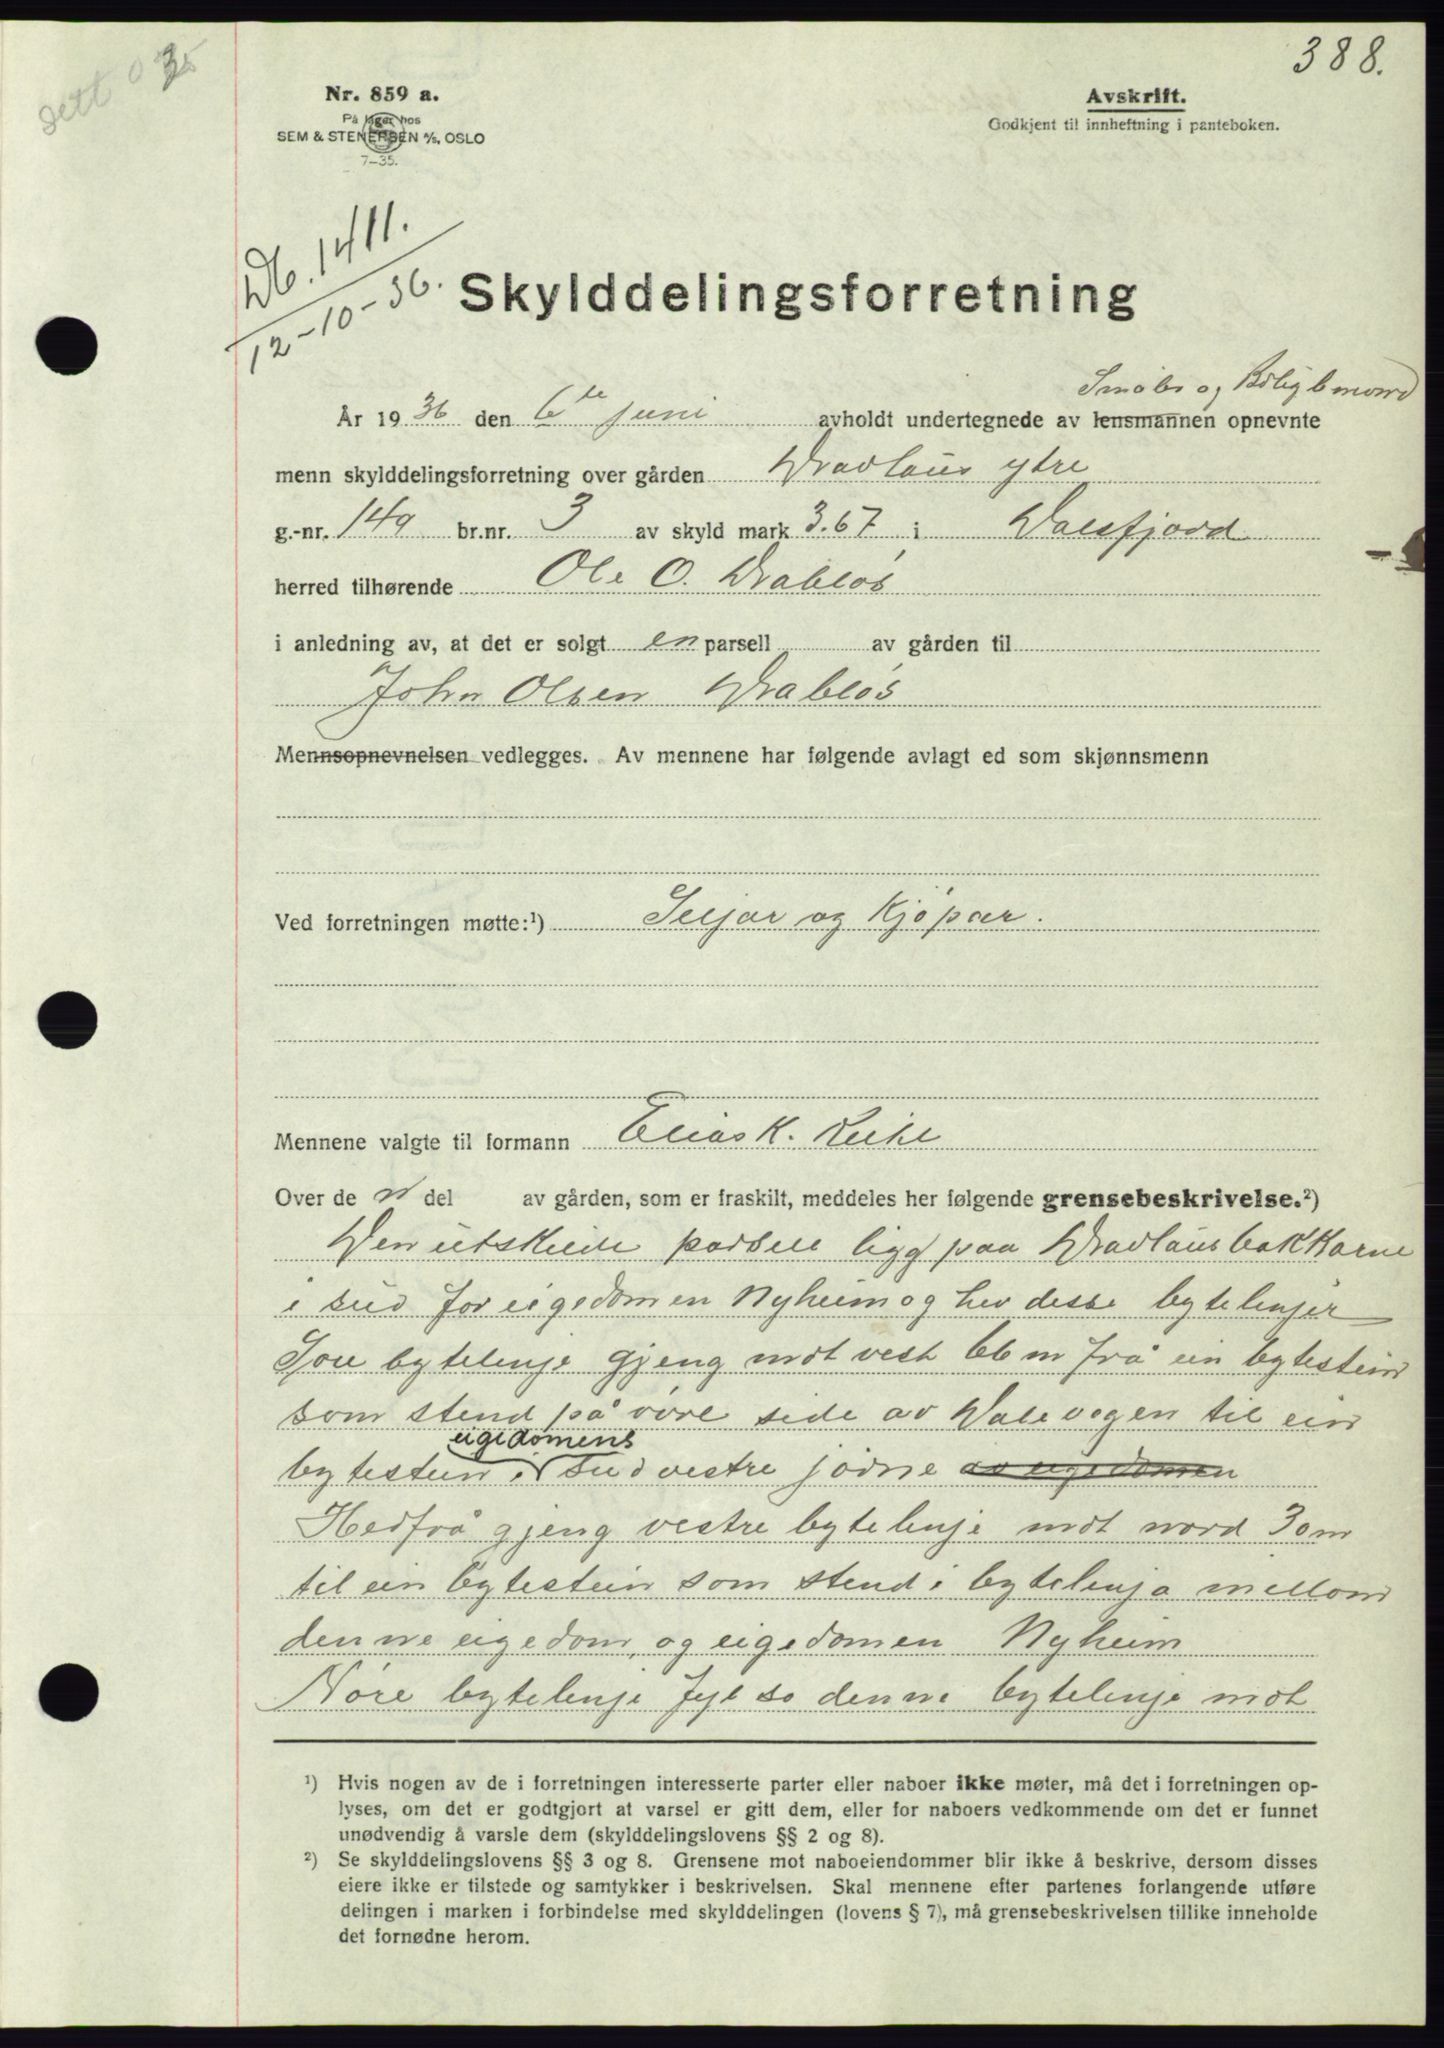 388.
dett
Nr. 859 a.
På lager hos
SEM & STENERSEN A/S, OSLO
7–35.
Avskrift.
Godkjent til innheftning i panteboken.
Db. 1411.
12-10-36.
Skylddelingsforretning
Småbr og Boligl.mend
År 1936 den 6te juni avholdt undertegnede av lensmannen opnevnte
menn skylddelingsforretning over gården Dravlaus ytre
g.-nr. 149 br.nr. 3 av skyld mark 3.67 i Dalsfjord
herred tilhørende Ole O. Drabløs
i anledning av, at det er solgt en parsell av gården til
John Olsen Drabløs
Mennsopnevnelsen vedlegges. Av mennene har følgende avlagt ed som skjønnsmenn
Ved forretningen møtte:¹) Seljar og Kjöpar.
Mennene valgte til formann Elias K. Leikl
Over den del av gården, som er fraskilt, meddeles her følgende grensebeskrivelse.²)
Den utskilde parsell ligg paa Dravlausbakkarne
i sud for eigedomen Nyheim og hev desse bytelinjer
Søre bytelinje gjeng mot vest 66 m frå ein bytestein
som stend på øvre side av Dalevegen til ein
eigedomens
bytestein i sudvestre jørne av eigedomen
Hedfrå gjeng vestre bytelinje mot nord 30m
til ein bytestein som stend i bytelinja millom
denne eigedom, og eigedomen Nyheim
Nöre bytelinje fyl so denne bytelinje mot
¹) Hvis nogen av de i forretningen interesserte parter eller naboer ikke møter, må det i forretningen op-
lyses, om det er godtgjort at varsel er gitt dem, eller for naboers vedkommende om det er funnet
unødvendig å varsle dem (skylddelingslovens §§ 2 og 8).
²) Se skylddelingslovens §§ 3 og 8. Grensene mot naboeiendommer blir ikke å beskrive, dersom disses
eiere ikke er tilstede og samtykker i beskrivelsen. Skal mennene efter partenes forlangende utføre
delingen i marken i forbindelse med skylddelingen (lovens § 7), må grensebeskrivelsen tillike inneholde
det fornødne herom.